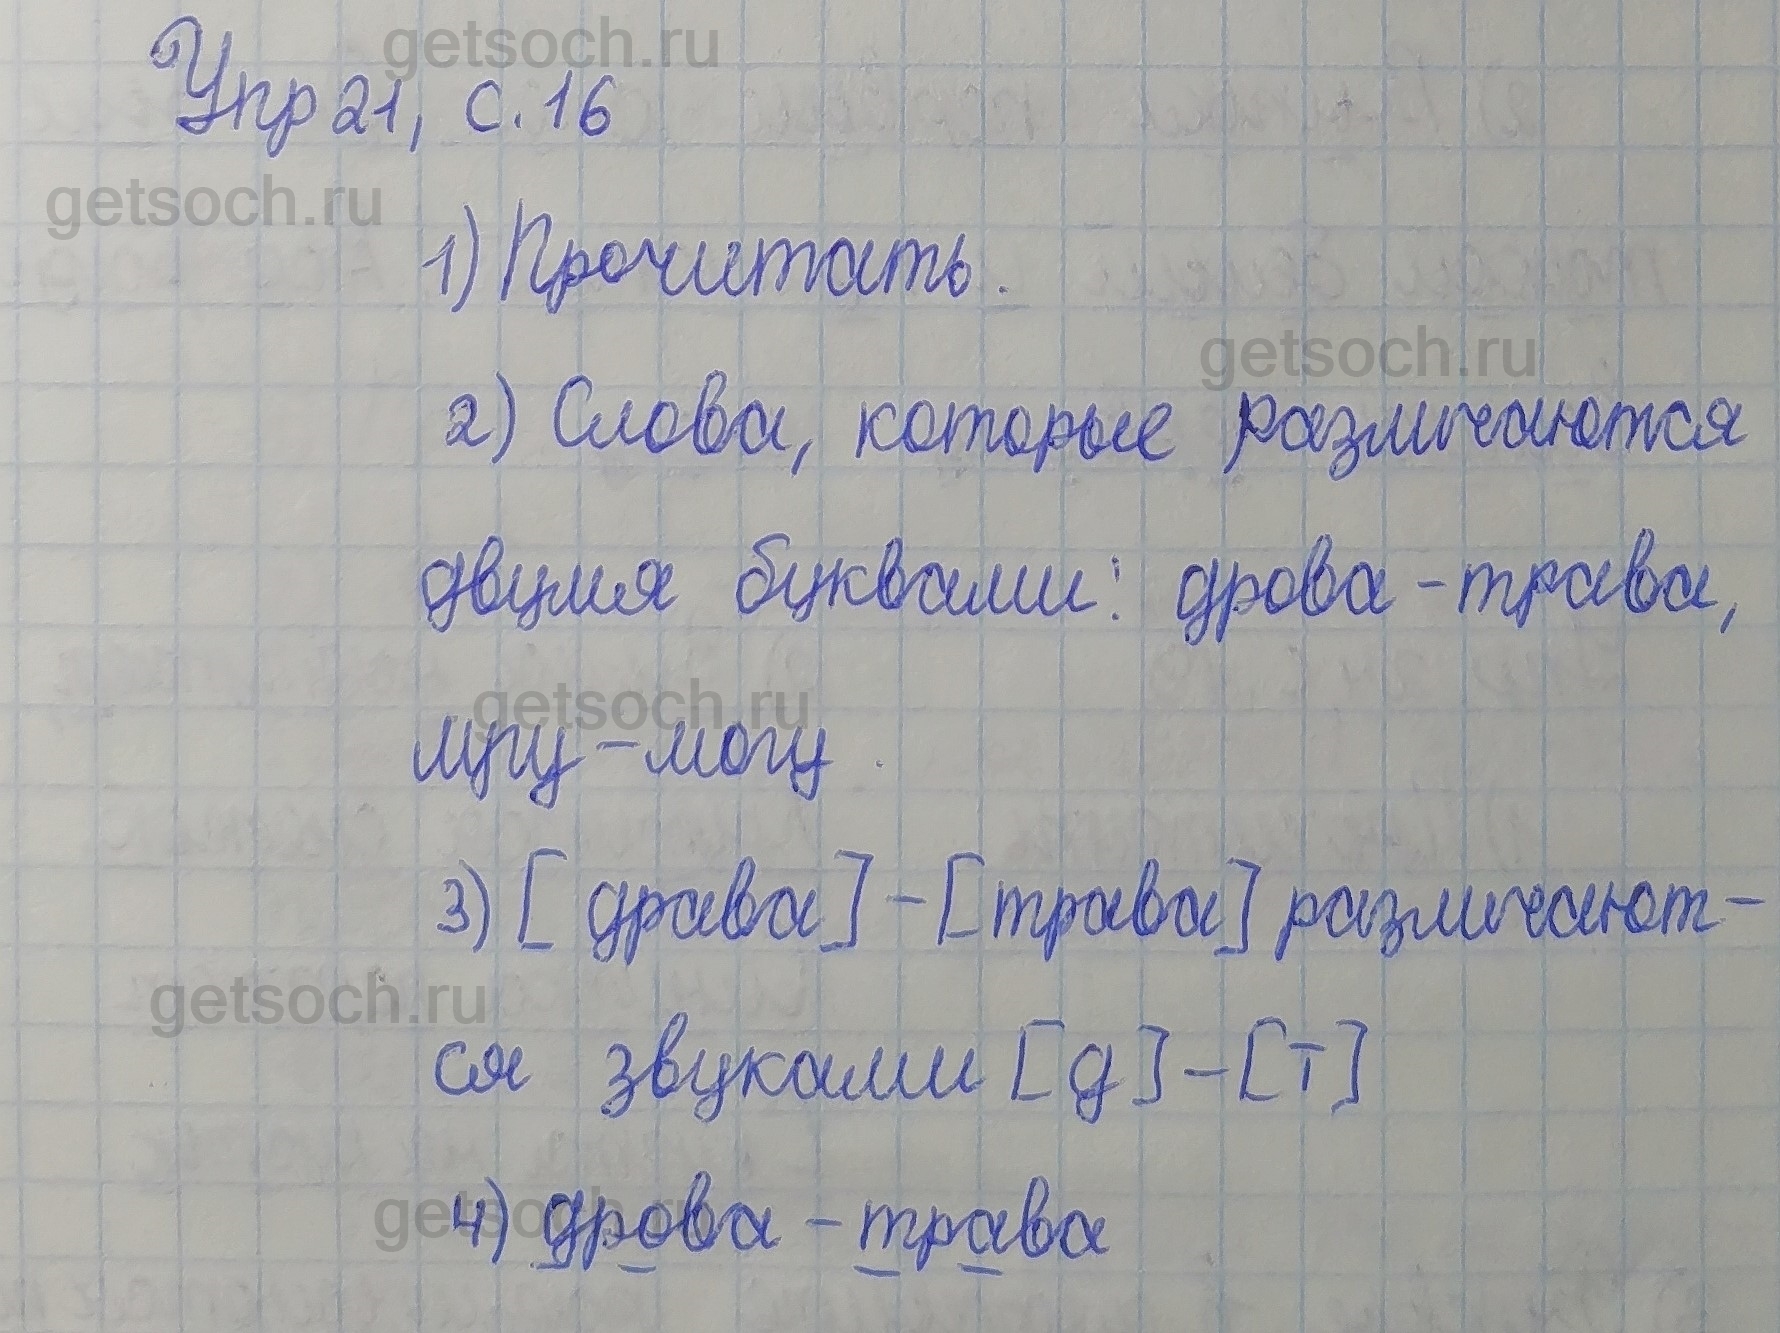 getsoch.ru
Упр 21, с. 16
getsoch.ru
1) Прочитать.
getsoch.ru
2) Слова, которые различаются
двумя буквами: дрова - трава,
getsoch.ru
мгу - могу.
3) [драва] - [трава] различают-
getsoch.ru
ся звуками [д] - [т]
getsoch.ru
4) дрова - трава